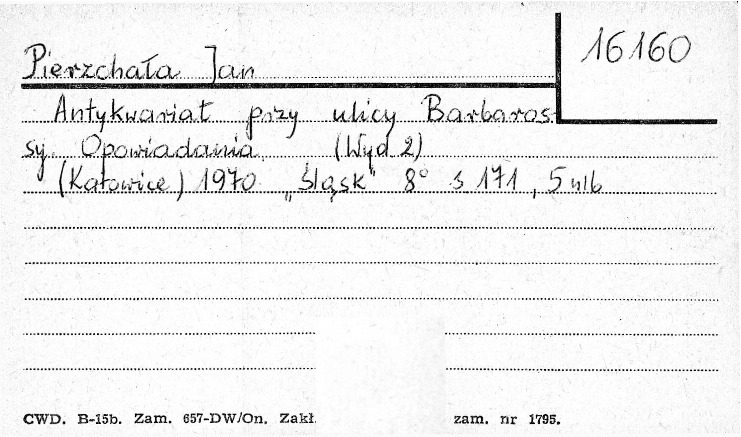 16160
Pierzchała Jan
Antykwariat przy ulicy Barbaros-
sy. Opowiadania (Wyd 2)
(Katowice) 1970 „Śląsk" 8° s 171, 5 nlb
CWD. B-15b. Zam. 657-DW/On. Zakł. zam. nr 1795.